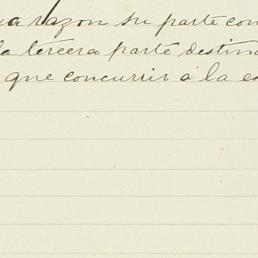 razon su parte con
la tercera parte destin
que concurrir á la es